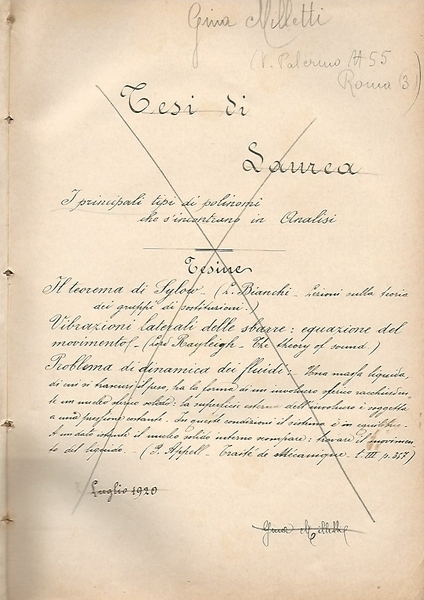 Gina Milletti
(V. Palermo # 55
Roma (3)
Tesi di
Laurea
I principali tipi di polinomi
che s'incontrano in Analisi
Tesine
Il teorema di Sylow - (L. Bianchi - Lezioni sulla teoria
dei gruppi di sostituzioni.)
Vibrazioni laterali delle sbarre: equazione del
movimento - (Rayleigh - The theory of sound.)
Problema di dinamica dei fluidi: - Una massa liquida,
di cui si trascuri il peso, ha la forma di un involucro sferico racchiuden
te un nucleo sferico solido: la superficie esterna dell'involucro è soggetta
a una pressione costante. In queste condizioni il sistema è in equilibrio.
A un dato istante il nucleo solido interno scompare: trovare il movimen
to del liquido. - (P. Appell - Traité de Mécanique t. III p. 357)
Luglio 1920
Gina Milletti